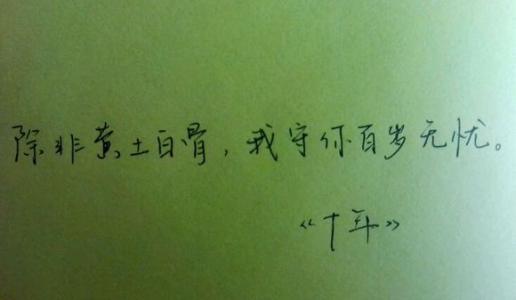 除非黄土白骨，我守你百岁无忧。
《十年》